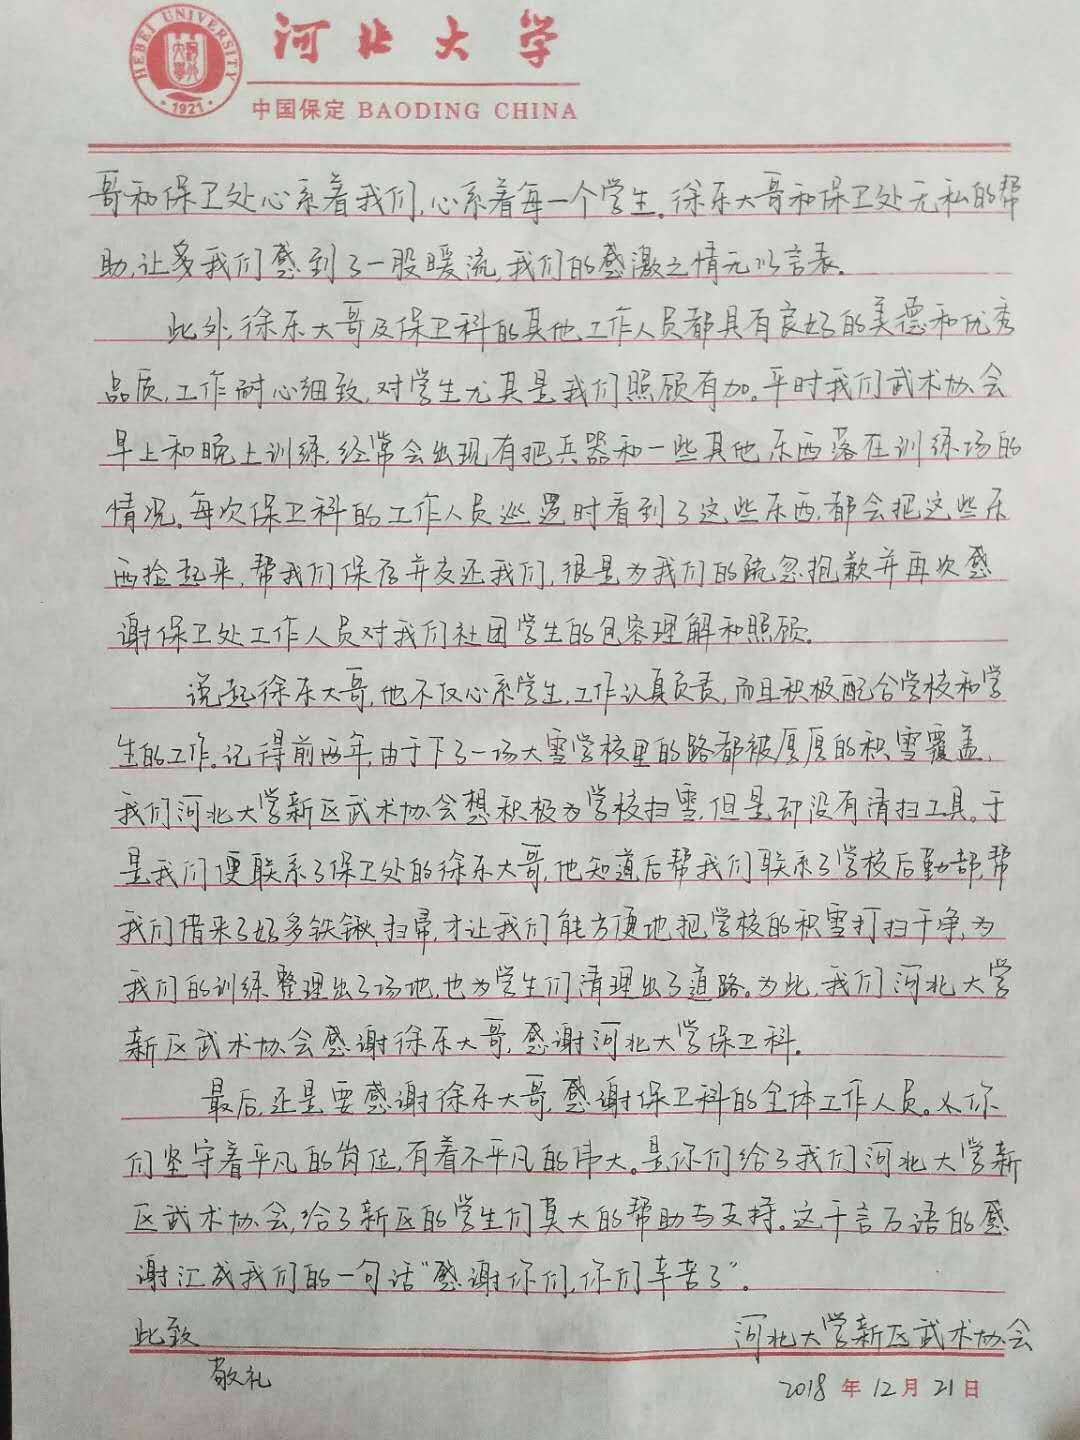 HEBEI UNIVERSITY
1921
河北大学
中国保定 BAODING CHINA
哥和保卫处心系着我们,心系着每一个学生。徐东大哥和保卫处无私的帮
助,让我们感到了一股暖流,我们的感激之情无以言表。
此外,徐东大哥及保卫科的其他工作人员都具有良好的美德和优秀
品质,工作耐心细致,对学生尤其是我们照顾有加。平时我们武术协会
早上和晚上训练,经常会出现有把兵器和一些其他东西落在训练场的
情况。每次保卫科的工作人员巡逻时看到了这些东西,都会把这些东
西捡起来,帮我们保存并交还我们,很是为我们的疏忽抱歉并再次感
谢保卫处工作人员对我们社团学生的包容理解和照顾。
说起徐东大哥,他不仅心系学生,工作认真负责,而且积极配合学校和学
生的工作。记得前两年,由于下了一场大雪学校里的路都被厚厚的积雪覆盖,
我们河北大学新区武术协会想积极为学校扫雪,但是却没有清扫工具。于
是我们便联系了保卫处的徐东大哥,他知道后帮我们联系了学校后勤部,帮
我们借来了好多铁锹,扫帚,才让我们能方便地把学校的积雪打扫干净,为
我们的训练整理出了场地,也为学生们清理出了道路。为此,我们河北大学
新区武术协会感谢徐东大哥,感谢河北大学保卫科。
最后,还是要感谢徐东大哥,感谢保卫科的全体工作人员。你
们坚守着平凡的岗位,有着不平凡的伟大。是你们给了我们河北大学新
区武术协会,给了新区的学生们莫大的帮助与支持。这千言万语的感
谢汇成我们的一句话“感谢你们,你们辛苦了”。
此致 河北大学新区武术协会
敬礼 2018年12月21日